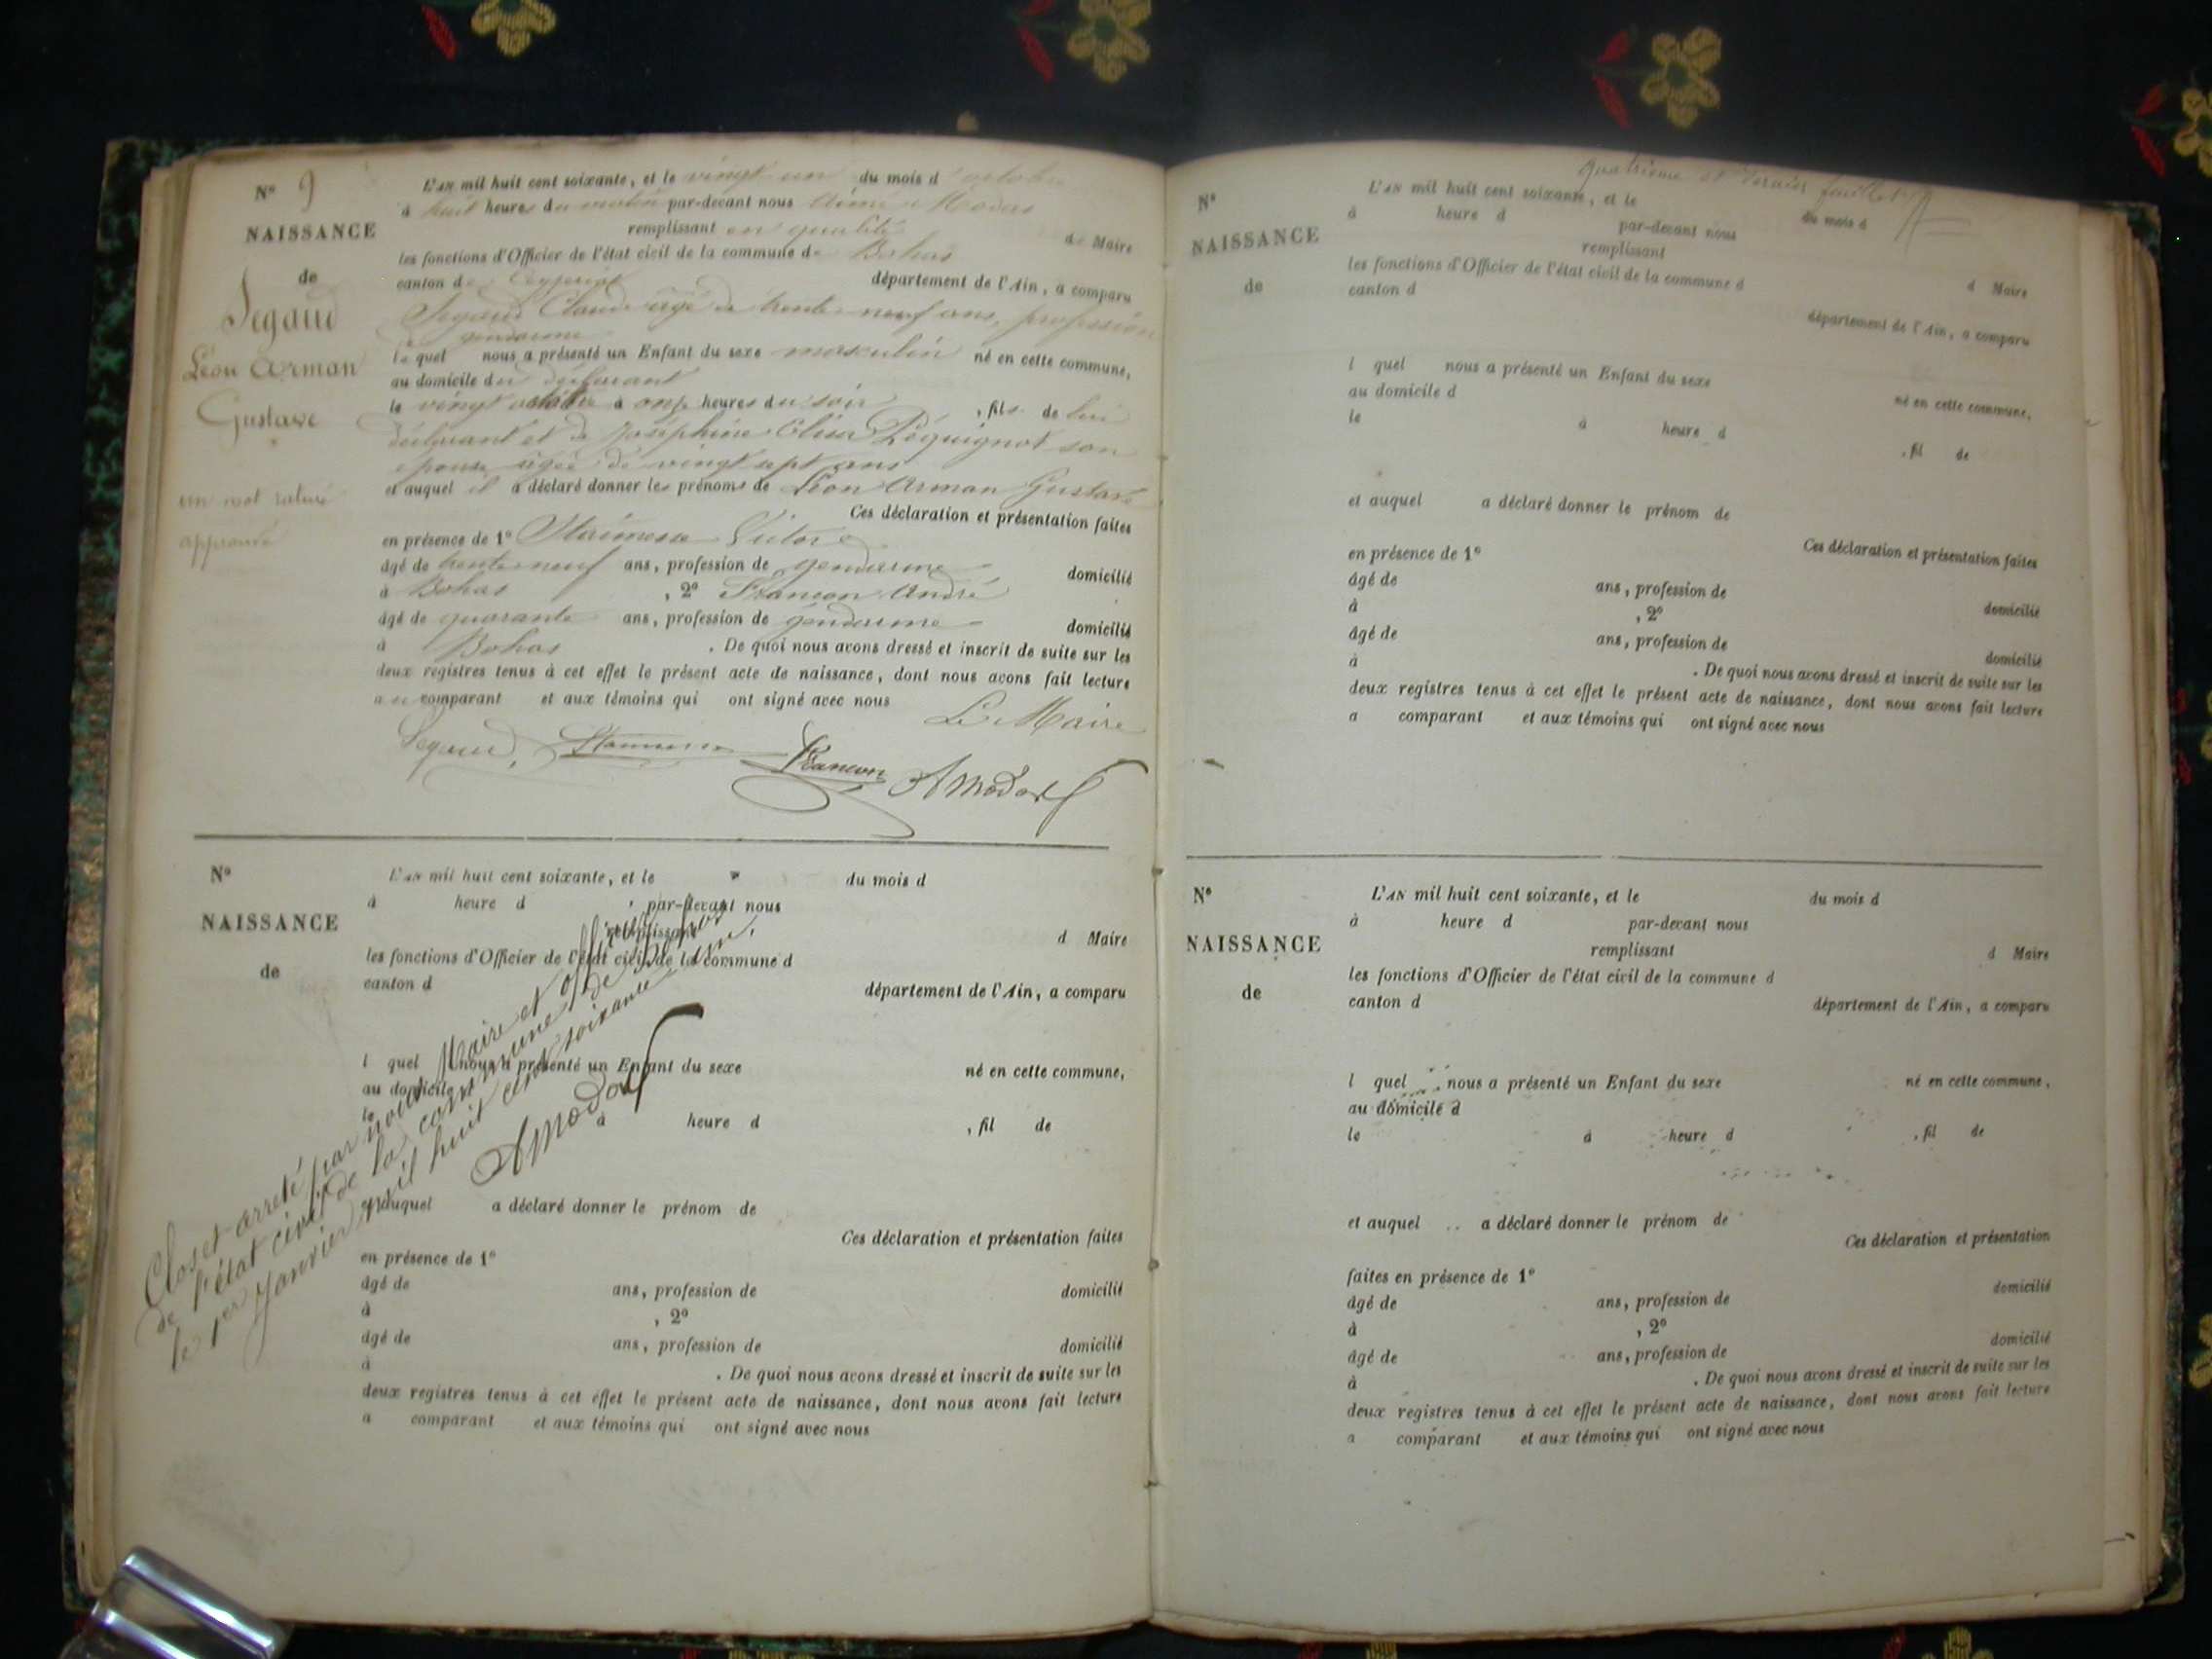 N° 9
NAISSANCE
de
Segaud
Léon Arman
Gustave
un mot raturé
approuvé
L'AN mil huit cent soixante, et le vingt un du mois d'octobre
à huit heures du matin par-devant nous Aimé Modas
remplissant en qualité de Maire
les fonctions d'Officier de l'état civil de la commune de Bohas
canton de Ceyzeriat département de l'Ain, a comparu
Segaud Claude âgé de trente neuf ans, profession
de gendarme
le quel nous a présenté un Enfant du sexe masculin né en cette commune,
au domicile du déclarant
le vingt octobre à onze heures du soir, fils de lui
déclarant et de Joséphine Elisa Péquignot son
épouse âgée de vingt sept ans
et auquel il a déclaré donner les prénoms de Léon Arman Gustave
Ces déclaration et présentation faites
en présence de 1° Victor
âgé de trente neuf ans, profession de gendarme domicilié
à Bohas, 2° Francon André
âgé de quarante ans, profession de gendarme domicilié
à Bohas. De quoi nous avons dressé et inscrit de suite sur les
deux registres tenus à cet effet le présent acte de naissance, dont nous avons fait lecture
au comparant et aux témoins qui ont signé avec nous
Le Maire
Segaud Francon
N°
NAISSANCE
de
L'AN mil huit cent soixante, et le du mois d
à heure d par-devant nous
remplissant d Maire
les fonctions d'Officier de l'état civil de la commune d
canton d département de l'Ain, a comparu
l quel nous a présenté un Enfant du sexe né en cette commune,
au domicile
le à heure d, fil de
et auquel a déclaré donner le prénom de
Ces déclaration et présentation faites
en présence de 1°
âgé de ans, profession de domicilié
à, 2°
âgé de ans, profession de domicilié
à. De quoi nous avons dressé et inscrit de suite sur les
deux registres tenus à cet effet le présent acte de naissance, dont nous avons fait lecture
a comparant et aux témoins qui ont signé avec nous
Clos et arreté par nous Maire et officier
de l'état civil de la commune de Bohas
le 1er Janvier mil huit cent soixante un.
quatrième et dernier feuillet
N°
NAISSANCE
de
L'AN mil huit cent soixante, et le du mois d
à heure d par-devant nous
remplissant d Maire
les fonctions d'Officier de l'état civil de la commune d
canton d département de l'Ain, a comparu
l quel nous a présenté un Enfant du sexe né en cette commune,
au domicile d
le à heure d, fil de
et auquel a déclaré donner le prénom de
Ces déclaration et présentation faites
en présence de 1°
âgé de ans, profession de domicilié
à, 2°
âgé de ans, profession de domicilié
à. De quoi nous avons dressé et inscrit de suite sur les
deux registres tenus à cet effet le présent acte de naissance, dont nous avons fait lecture
a comparant et aux témoins qui ont signé avec nous
N°
NAISSANCE
de
L'AN mil huit cent soixante, et le du mois d
à heure d par-devant nous
remplissant d Maire
les fonctions d'Officier de l'état civil de la commune d
canton d département de l'Ain, a comparu
l quel nous a présenté un Enfant du sexe né en cette commune,
au domicile d
le à heure d, fil de
et auquel a déclaré donner le prénom de
Ces déclaration et présentation
faites en présence de 1°
âgé de ans, profession de domicilié
à, 2°
âgé de ans, profession de domicilié
à. De quoi nous avons dressé et inscrit de suite sur les
deux registres tenus à cet effet le présent acte de naissance, dont nous avons fait lecture
a comparant et aux témoins qui ont signé avec nous